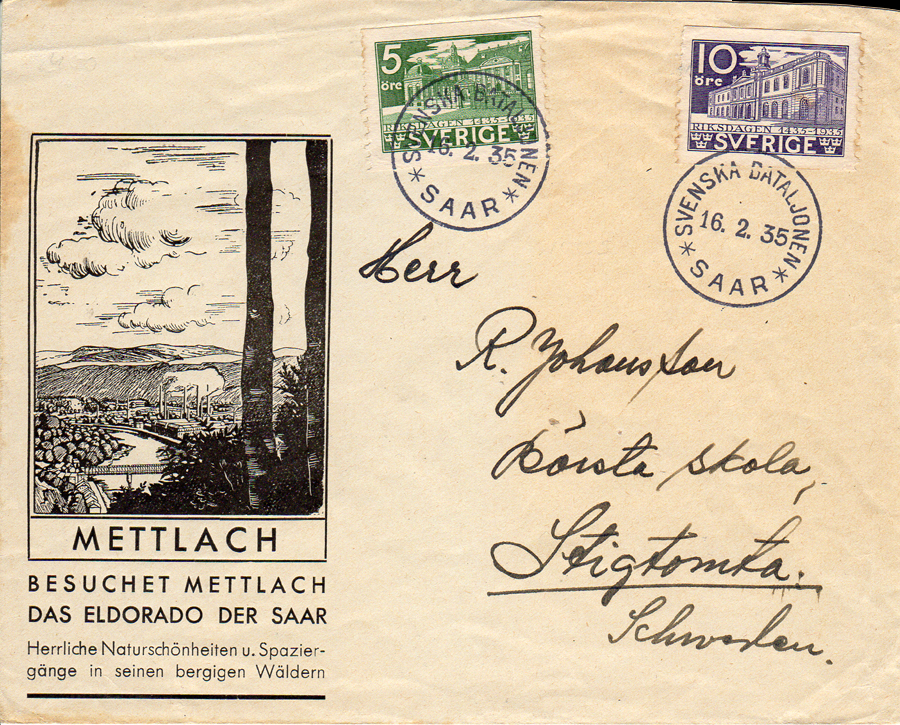 5
öre
RIKSDAGEN 1435-1935
SVERIGE
10
öre
RIKSDAGEN 1435-1935
SVERIGE
SVENSKA BATALJONEN
16. 2. 35
* SAAR *
SVENSKA BATALJONEN
16. 2. 35
* SAAR *
Herr
R. Johansson
Börsta skola,
Stigtomta.
Schweden.
METTLACH
BESUCHET METTLACH
DAS ELDORADO DER SAAR
Herrliche Naturschönheiten u. Spazier-
gänge in seinen bergigen Wäldern